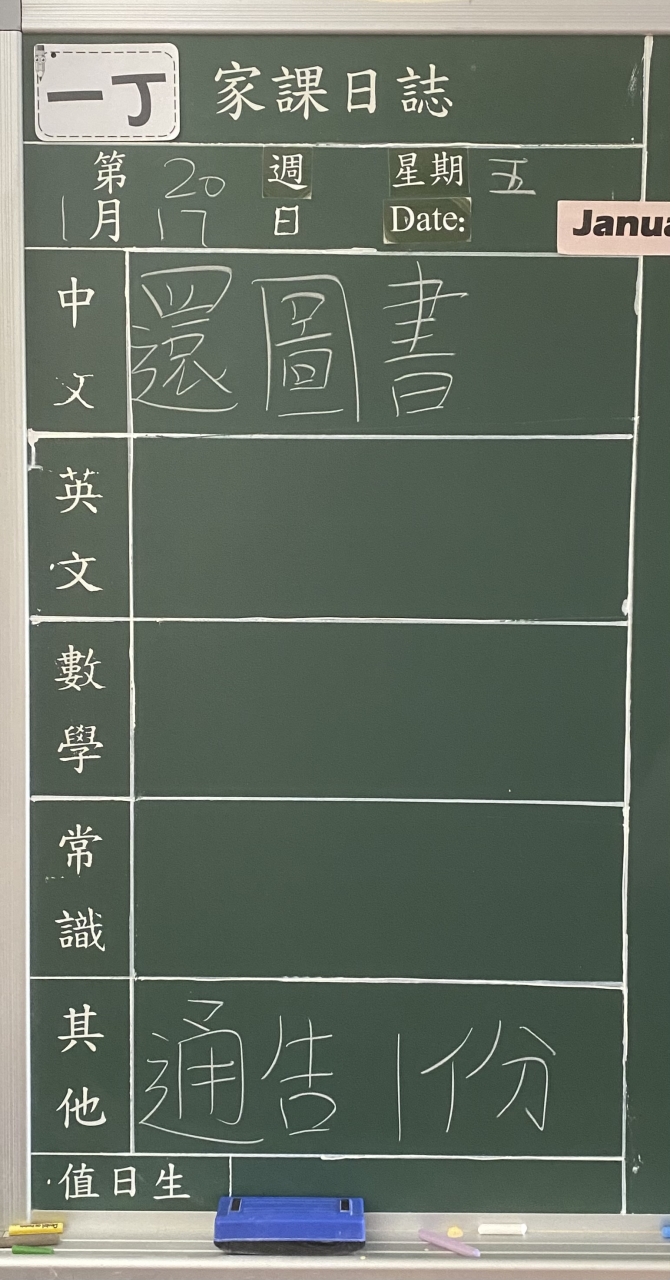 一丁 家課日誌
第 20 週 星期 五
1 月 17 日 Date: Janua
中文 還圖書
英文
數學
常識
其他 通告1份
值日生